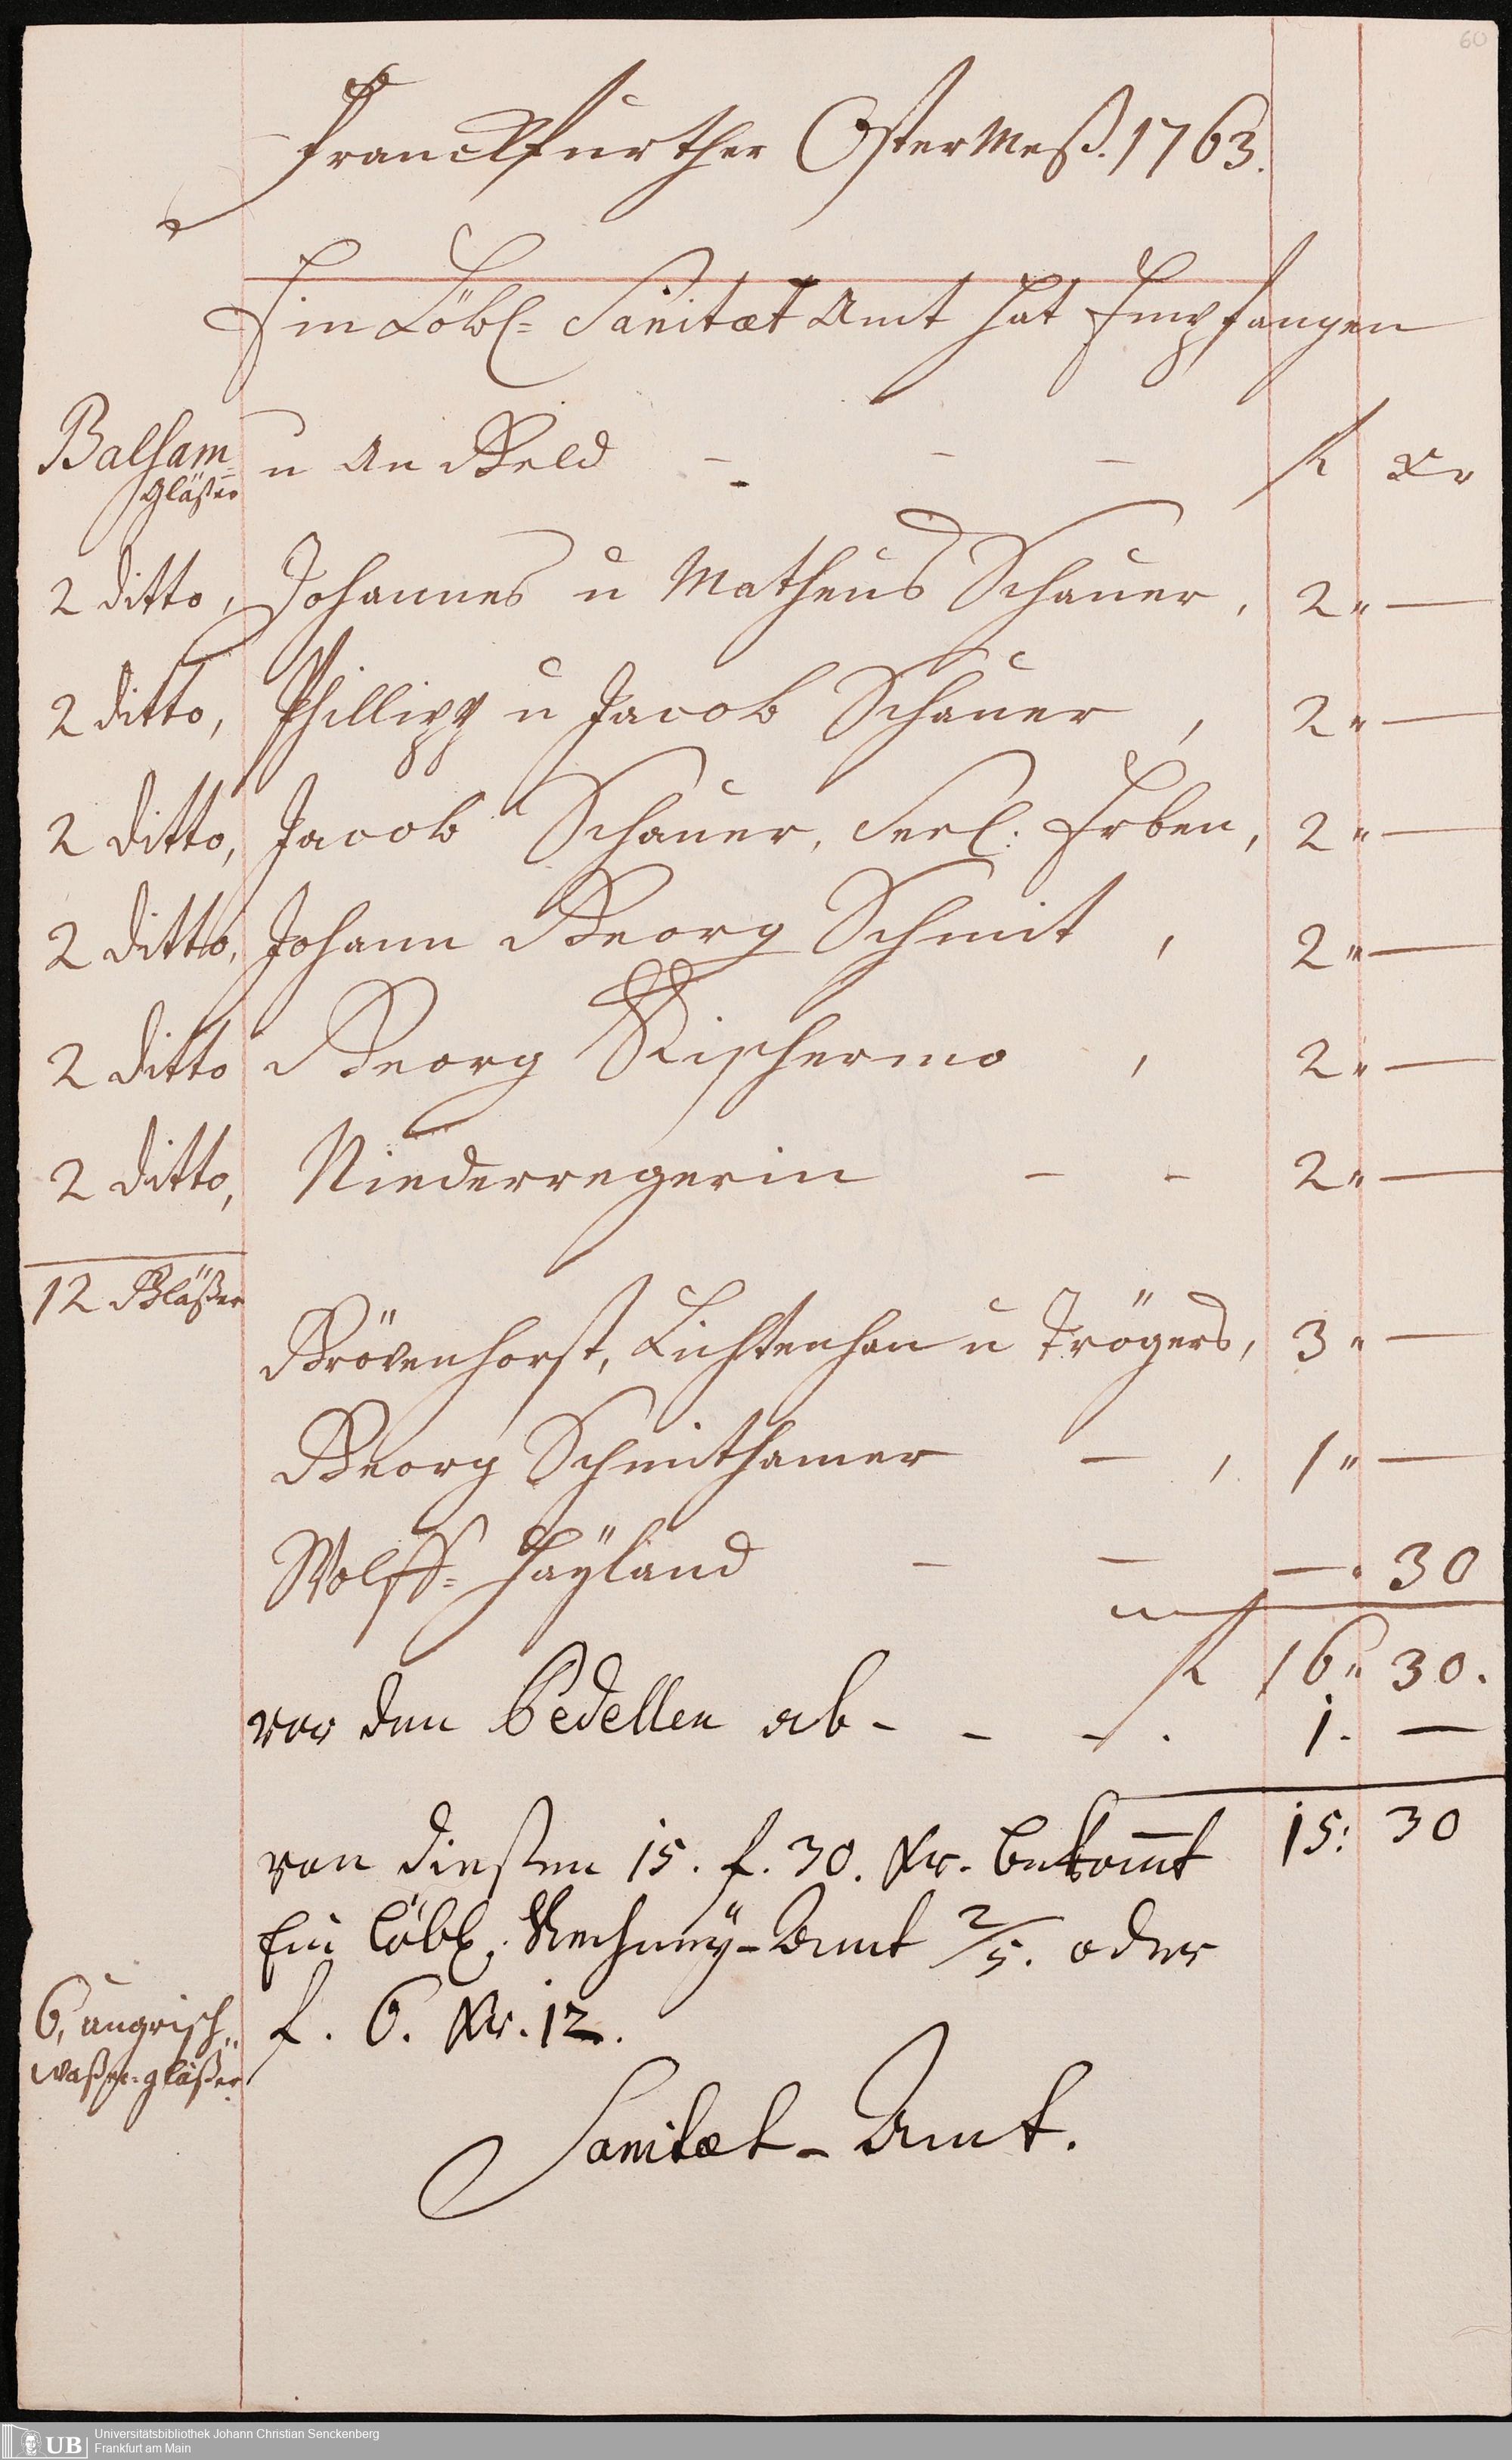 60
Franckfurther Oster Meß. 1763.
Ein Löbl= Sanitæt Amt hat Empfangen
Balsam= Gläßer u An Geld - - - f Xr
2 ditto, Johannes u Matheus Schauer, 2 " —
2 ditto, Phillipp u Jacob Schauer , 2 " —
2 ditto, Jacob Schauer, Seel: Erben, 2 " —
2 ditto, Johann Georg Schmit , 2 " —
2 ditto Georg , 2 " —
2 ditto, Niederregerin - - 2 " —
12 Gläßer
Grövenhorst, Lichtenhan u Trögers, 3 " —
Georg Schmithamer — , 1 " —
Wolff= Hayland — — — " 30
f 16 " 30.
vor den Bedellen ab - - - . 1. —
15: 30
von dießen 15. f. 30. Xr. bekomt
Ein löbl. Rechney-Amt 2/5. oder
f. 6. Xr. 12.
6, ungrisch
waßer=gläßer
Sanitæt-Amt.
UB Universitätsbibliothek Johann Christian Senckenberg
Frankfurt am Main